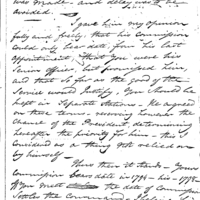 was made - and delay was to be
avoided. -
I gave him my opinion
fully and freely, that his commission
could only bear date from his last
appointment, that you was his
Senior officer, I promised him,
and that so far as the good of the
Service would justify, you should be
kept in Separate Stations - He agreed
on these terms, reserving however the
chance of the President, determining
hereafter the priority for him - this
I considered as a thing not relied on
by himself -
Thus then it stands - Yours
Commission bears date in 1794 - his - 1798
If you meet the date of Commission
Settles the Command,